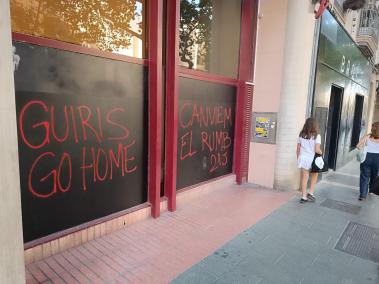 GUIRIS
GO HOME
CANVIEM
EL RUMB